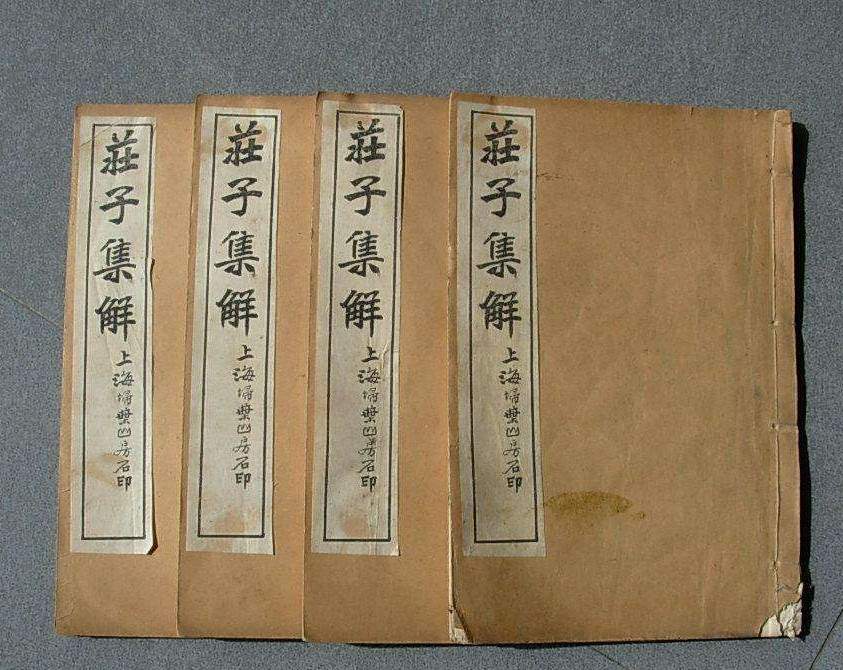 莊子集解
上海埽葉山房石印
莊子集解
上海埽葉山房石印
莊子集解
上海埽葉山房石印
莊子集解
上海埽葉山房石印